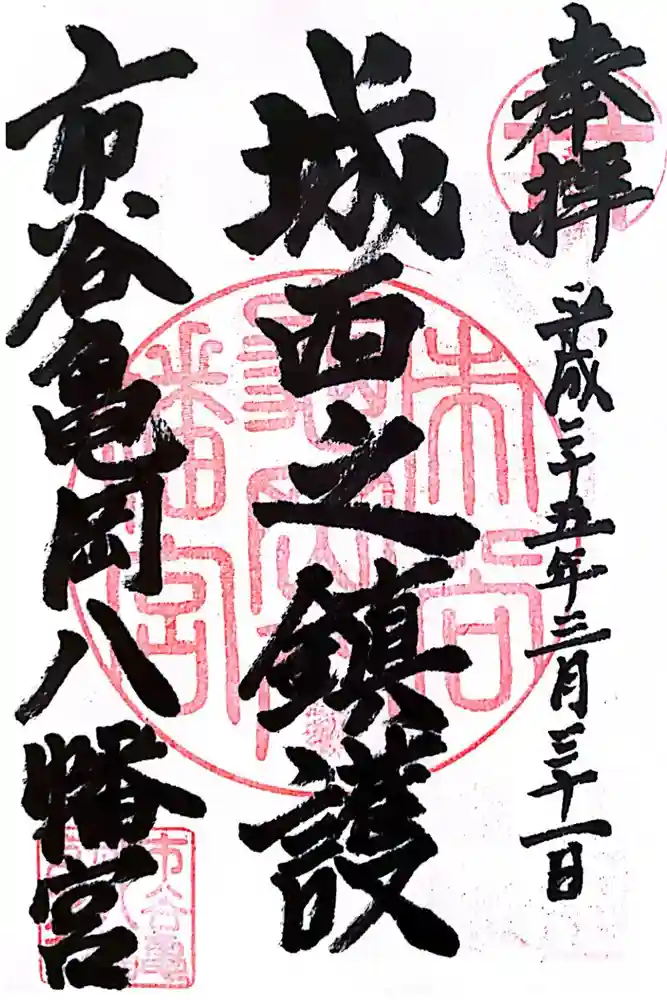 奉拝
平成二十五年三月三十一日
城西之鎮護
市谷亀岡八幡宮
市谷亀